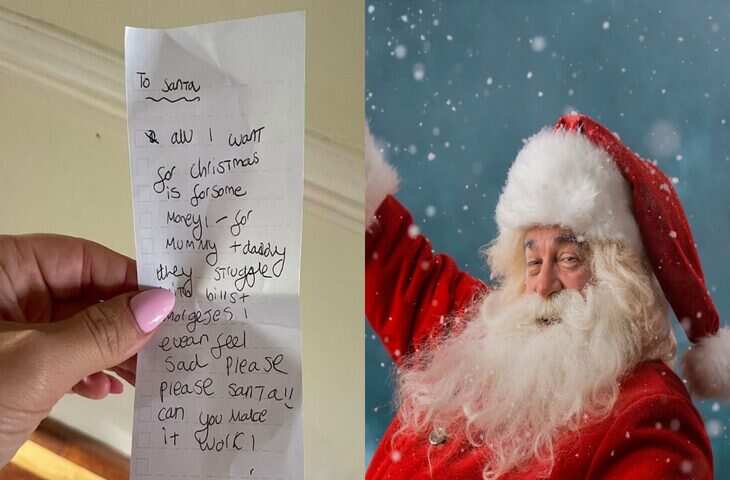 To Santa
all I want
for christmas
is forsome
Money! - for
Mummy + daddy
they struggle
bills +
Morgeses I
evean feel
Sad Please
please santa!!
can you Make
it work!